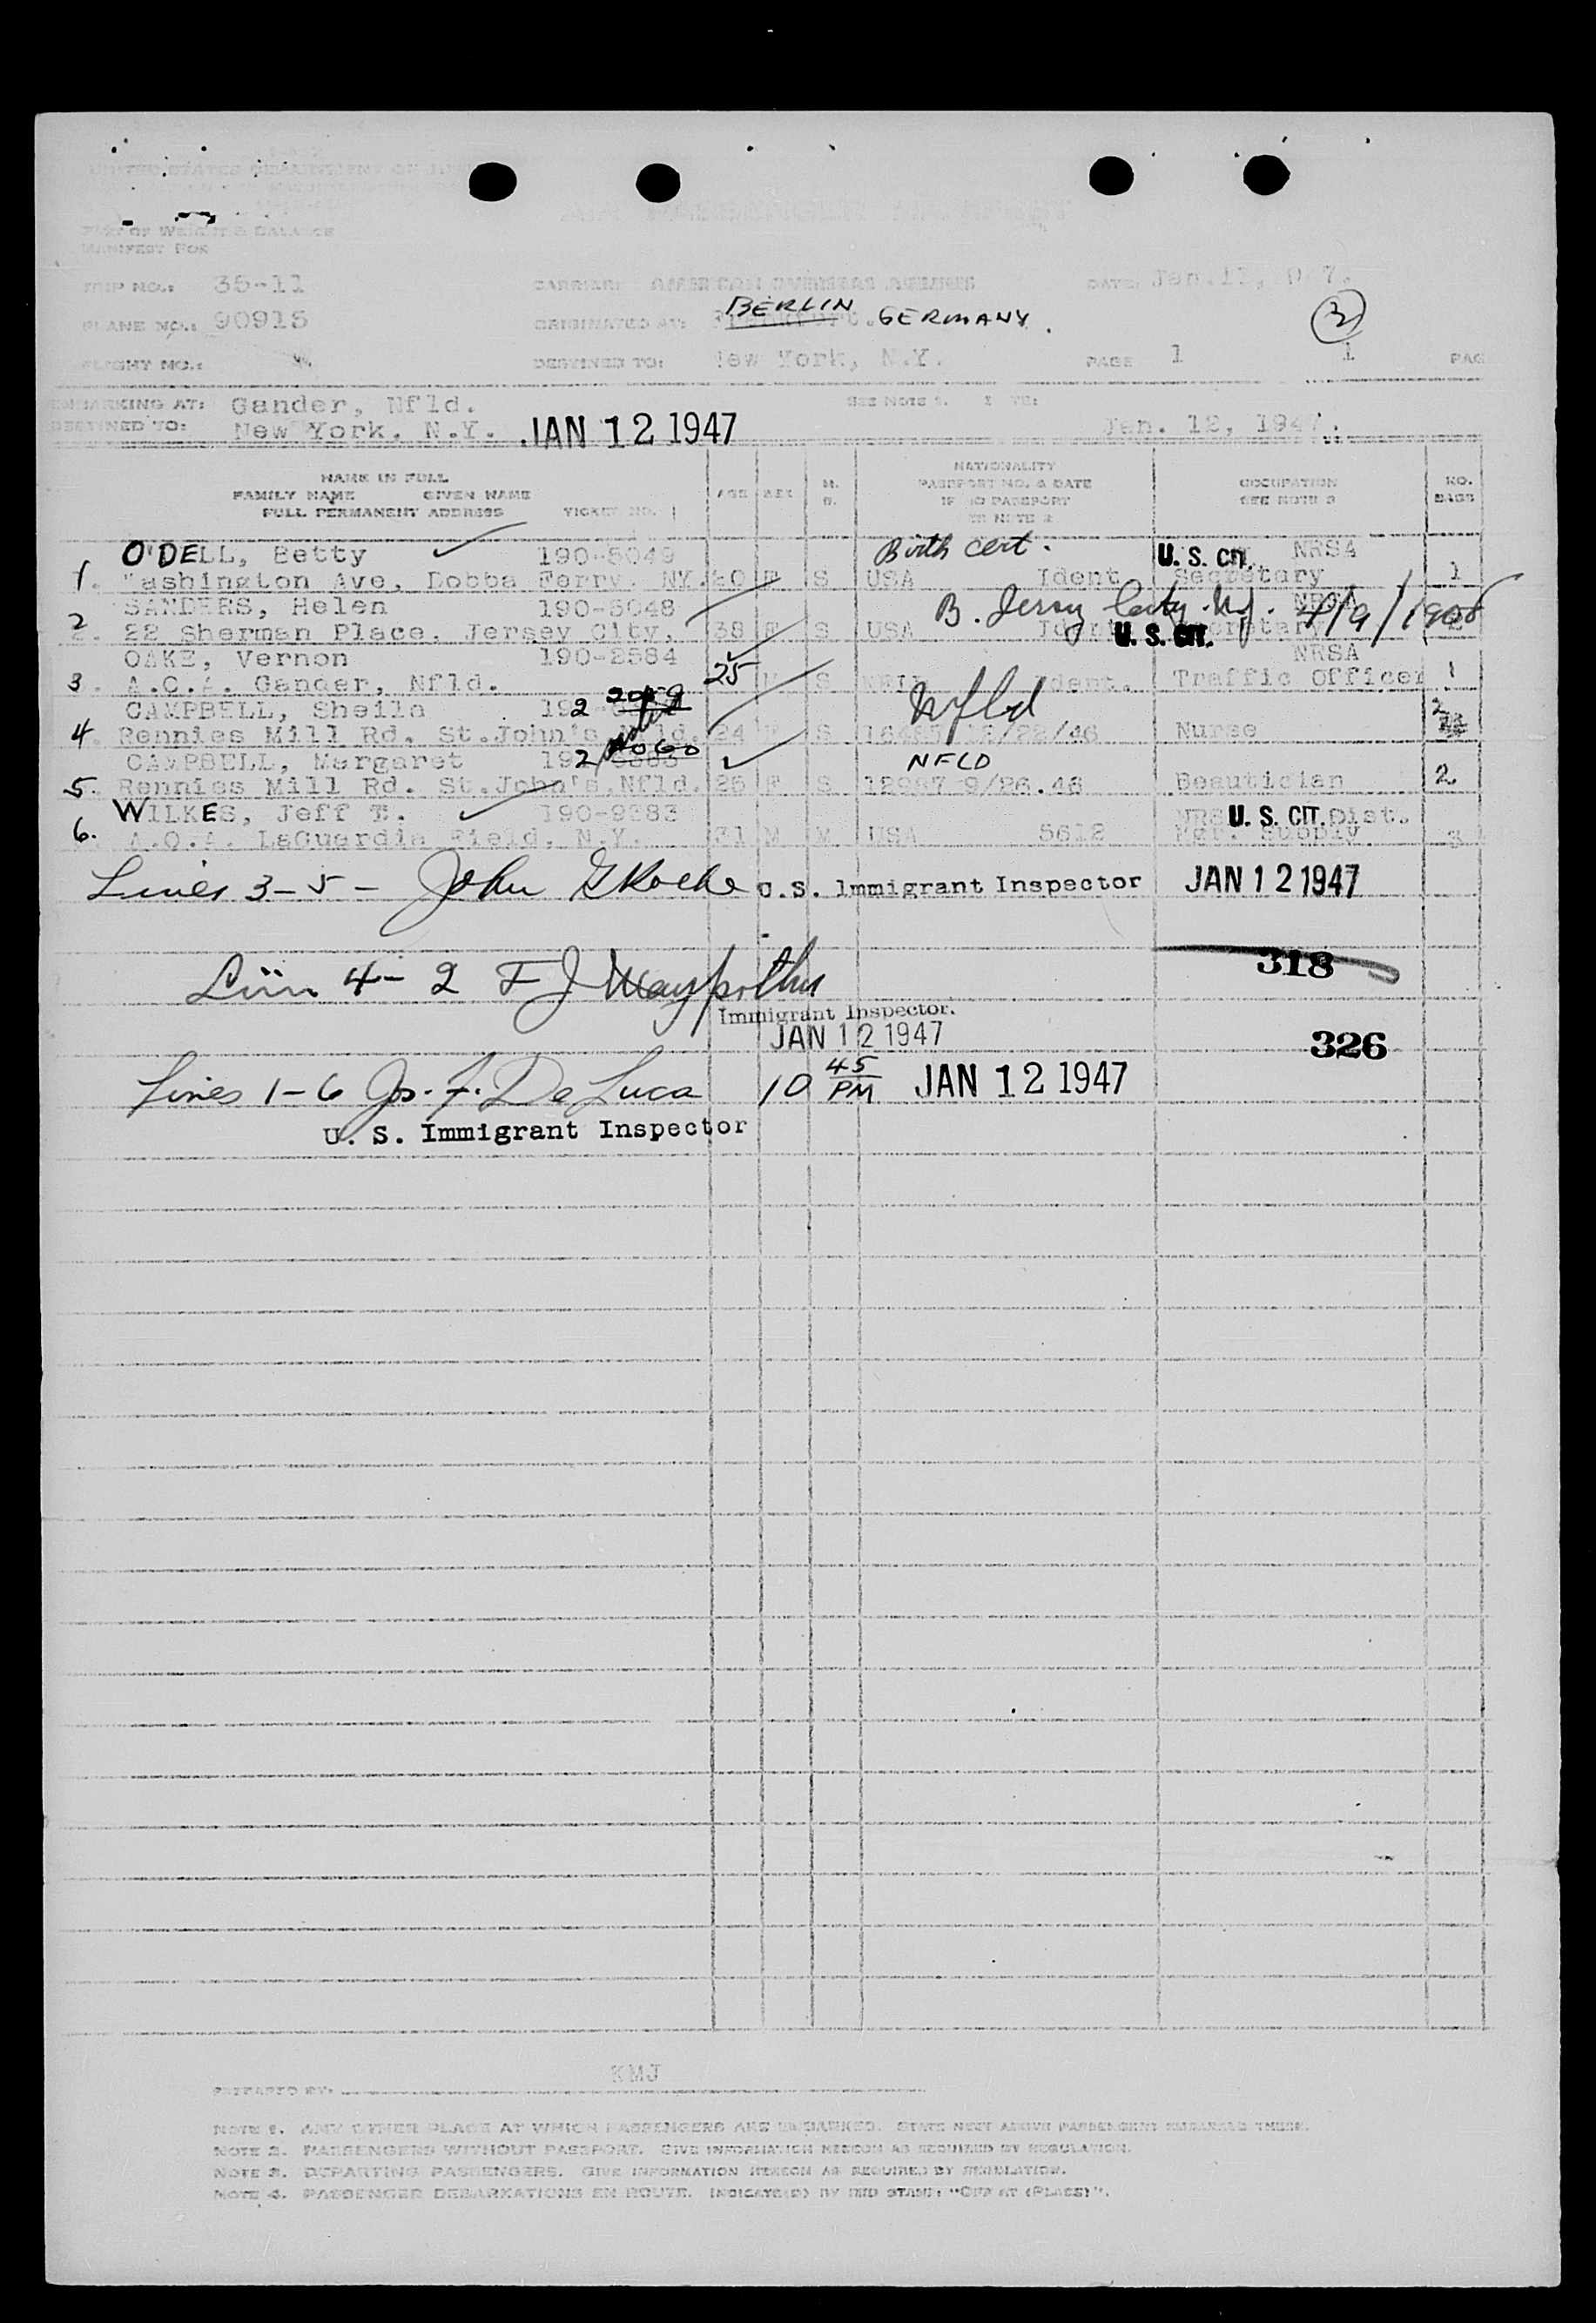 UNITED STATES DEPARTMENT OF
PART OF WEIGHT & BALANCE
MANIFEST FOR
TRIP NO.: 35-11 CARRIER: AMERICAN OVERSEAS AIRLINES DATE: Jan.11,
BERLIN GERMANY. 3
PLANE NO.: 90915 ORIGINATED AT: Frankfurt.
FLIGHT NO.: DESTINED TO: New York, N.Y. PAGE 1 1 PAG
EMBARKING AT: Gander, Nfld. SEE NOTE 1.
DESTINED TO: New York, N.Y. JAN 12 1947 Jan. 12, 1947.
NAME IN FULL
FAMILY NAME GIVEN NAME
FULL PERMANENT ADDRESS TICKET NO. AGE SEX M. S. NATIONALITY PASSPORT NO. & DATE IF NO PASSPORT SEE NOTE 2 OCCUPATION SEE NOTE 3 NO. BAGS
O'DELL, Betty 190-5049 Birth cert. U. S. CIT. NRSA
1. Washington Ave, Dobba Ferry, NY. 20 F S USA Ident Secretary 1
SANDERS, Helen 190-5048 B. Jersey City. N.J. 9/1908 NRSA
2. 22 Sherman Place, Jersey City, 38 F S USA Ident U. S. CIT. Secretary
OAKE, Vernon 190-2584 NRSA
3. A.O.A. Gander, Nfld. 25 M S Ident. Traffic Officer 1
CAMPBELL, Sheila 2 Nfld 2
4. Rennies Mill Rd. St.John's Nfld. 24 F S /22/46 Nurse
CAMPBELL, Margaret 2 NFLD
5. Rennies Mill Rd. St.John's,Nfld. 26 F S 12987 9/26.46 Beautician 2
WILKES, Jeff T. 190-9383 U. S. CIT. Dist.
6. A.O.A. LaGuardia Field, N.Y. 31 M M USA 5612 Mgr. Supply 3
Lines 3-5- John G Roche U.S. Immigrant Inspector JAN 12 1947
318
4-2 F J
Immigrant Inspector.
JAN 12 1947
326
Lines 1-6 Jos. F. De Luca 10 45 PM JAN 12 1947
U. S. Immigrant Inspector
KMJ
PREPARED BY:
NOTE 1. ANY OTHER PLACE AT WHICH PASSENGERS ARE EMBARKED. STATE NEXT ABOVE PASSENGERS EMBARKED THERE.
NOTE 2. PASSENGERS WITHOUT PASSPORT. GIVE INFORMATION HEREON AS REQUIRED BY REGULATION.
NOTE 3. DEPARTING PASSENGERS. GIVE INFORMATION HEREON AS REQUIRED BY REGULATION.
NOTE 4. PASSENGER DEBARKATIONS EN ROUTE. INDICATE(D) BY RED STAMP "OFF AT (PLACE)".